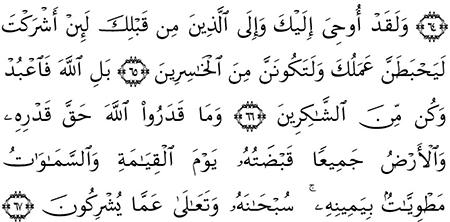 ﴿٦٤﴾ وَلَقَدْ أُوحِىَ إِلَيْكَ وَإِلَى ٱلَّذِينَ مِن قَبْلِكَ لَئِنْ أَشْرَكْتَ
لَيَحْبَطَنَّ عَمَلُكَ وَلَتَكُونَنَّ مِنَ ٱلْخَٰسِرِينَ ﴿٦٥﴾ بَلِ ٱللَّهَ فَٱعْبُدْ
وَكُن مِّنَ ٱلشَّٰكِرِينَ ﴿٦٦﴾ وَمَا قَدَرُوا۟ ٱللَّهَ حَقَّ قَدْرِهِۦ
وَٱلْأَرْضُ جَمِيعًا قَبْضَتُهُۥ يَوْمَ ٱلْقِيَٰمَةِ وَٱلسَّمَٰوَٰتُ
مَطْوِيَّٰتٌۢ بِيَمِينِهِۦ ۚ سُبْحَٰنَهُۥ وَتَعَٰلَىٰ عَمَّا يُشْرِكُونَ ﴿٦٧﴾